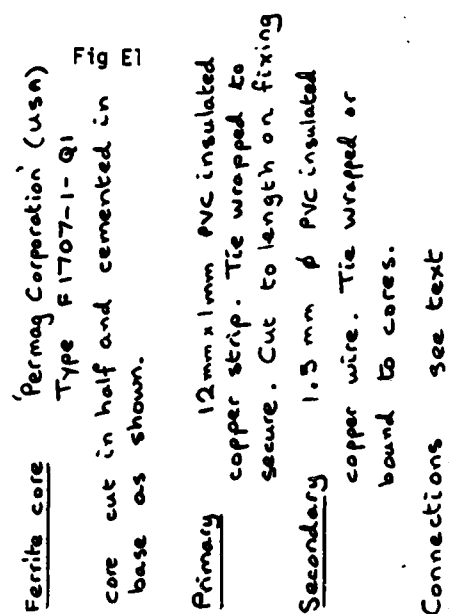 Fig E1
Ferrite core 'Permag Corporation' (USA)
Type F1707-1-Q1
core cut in half and cemented in
base as shown.
Primary 12mm x 1mm PVC insulated
copper strip. Tie wrapped to
secure. Cut to length on fixing
Secondary 1.5 mm ϕ PVC insulated
copper wire. Tie wrapped or
bound to cores.
Connections see text